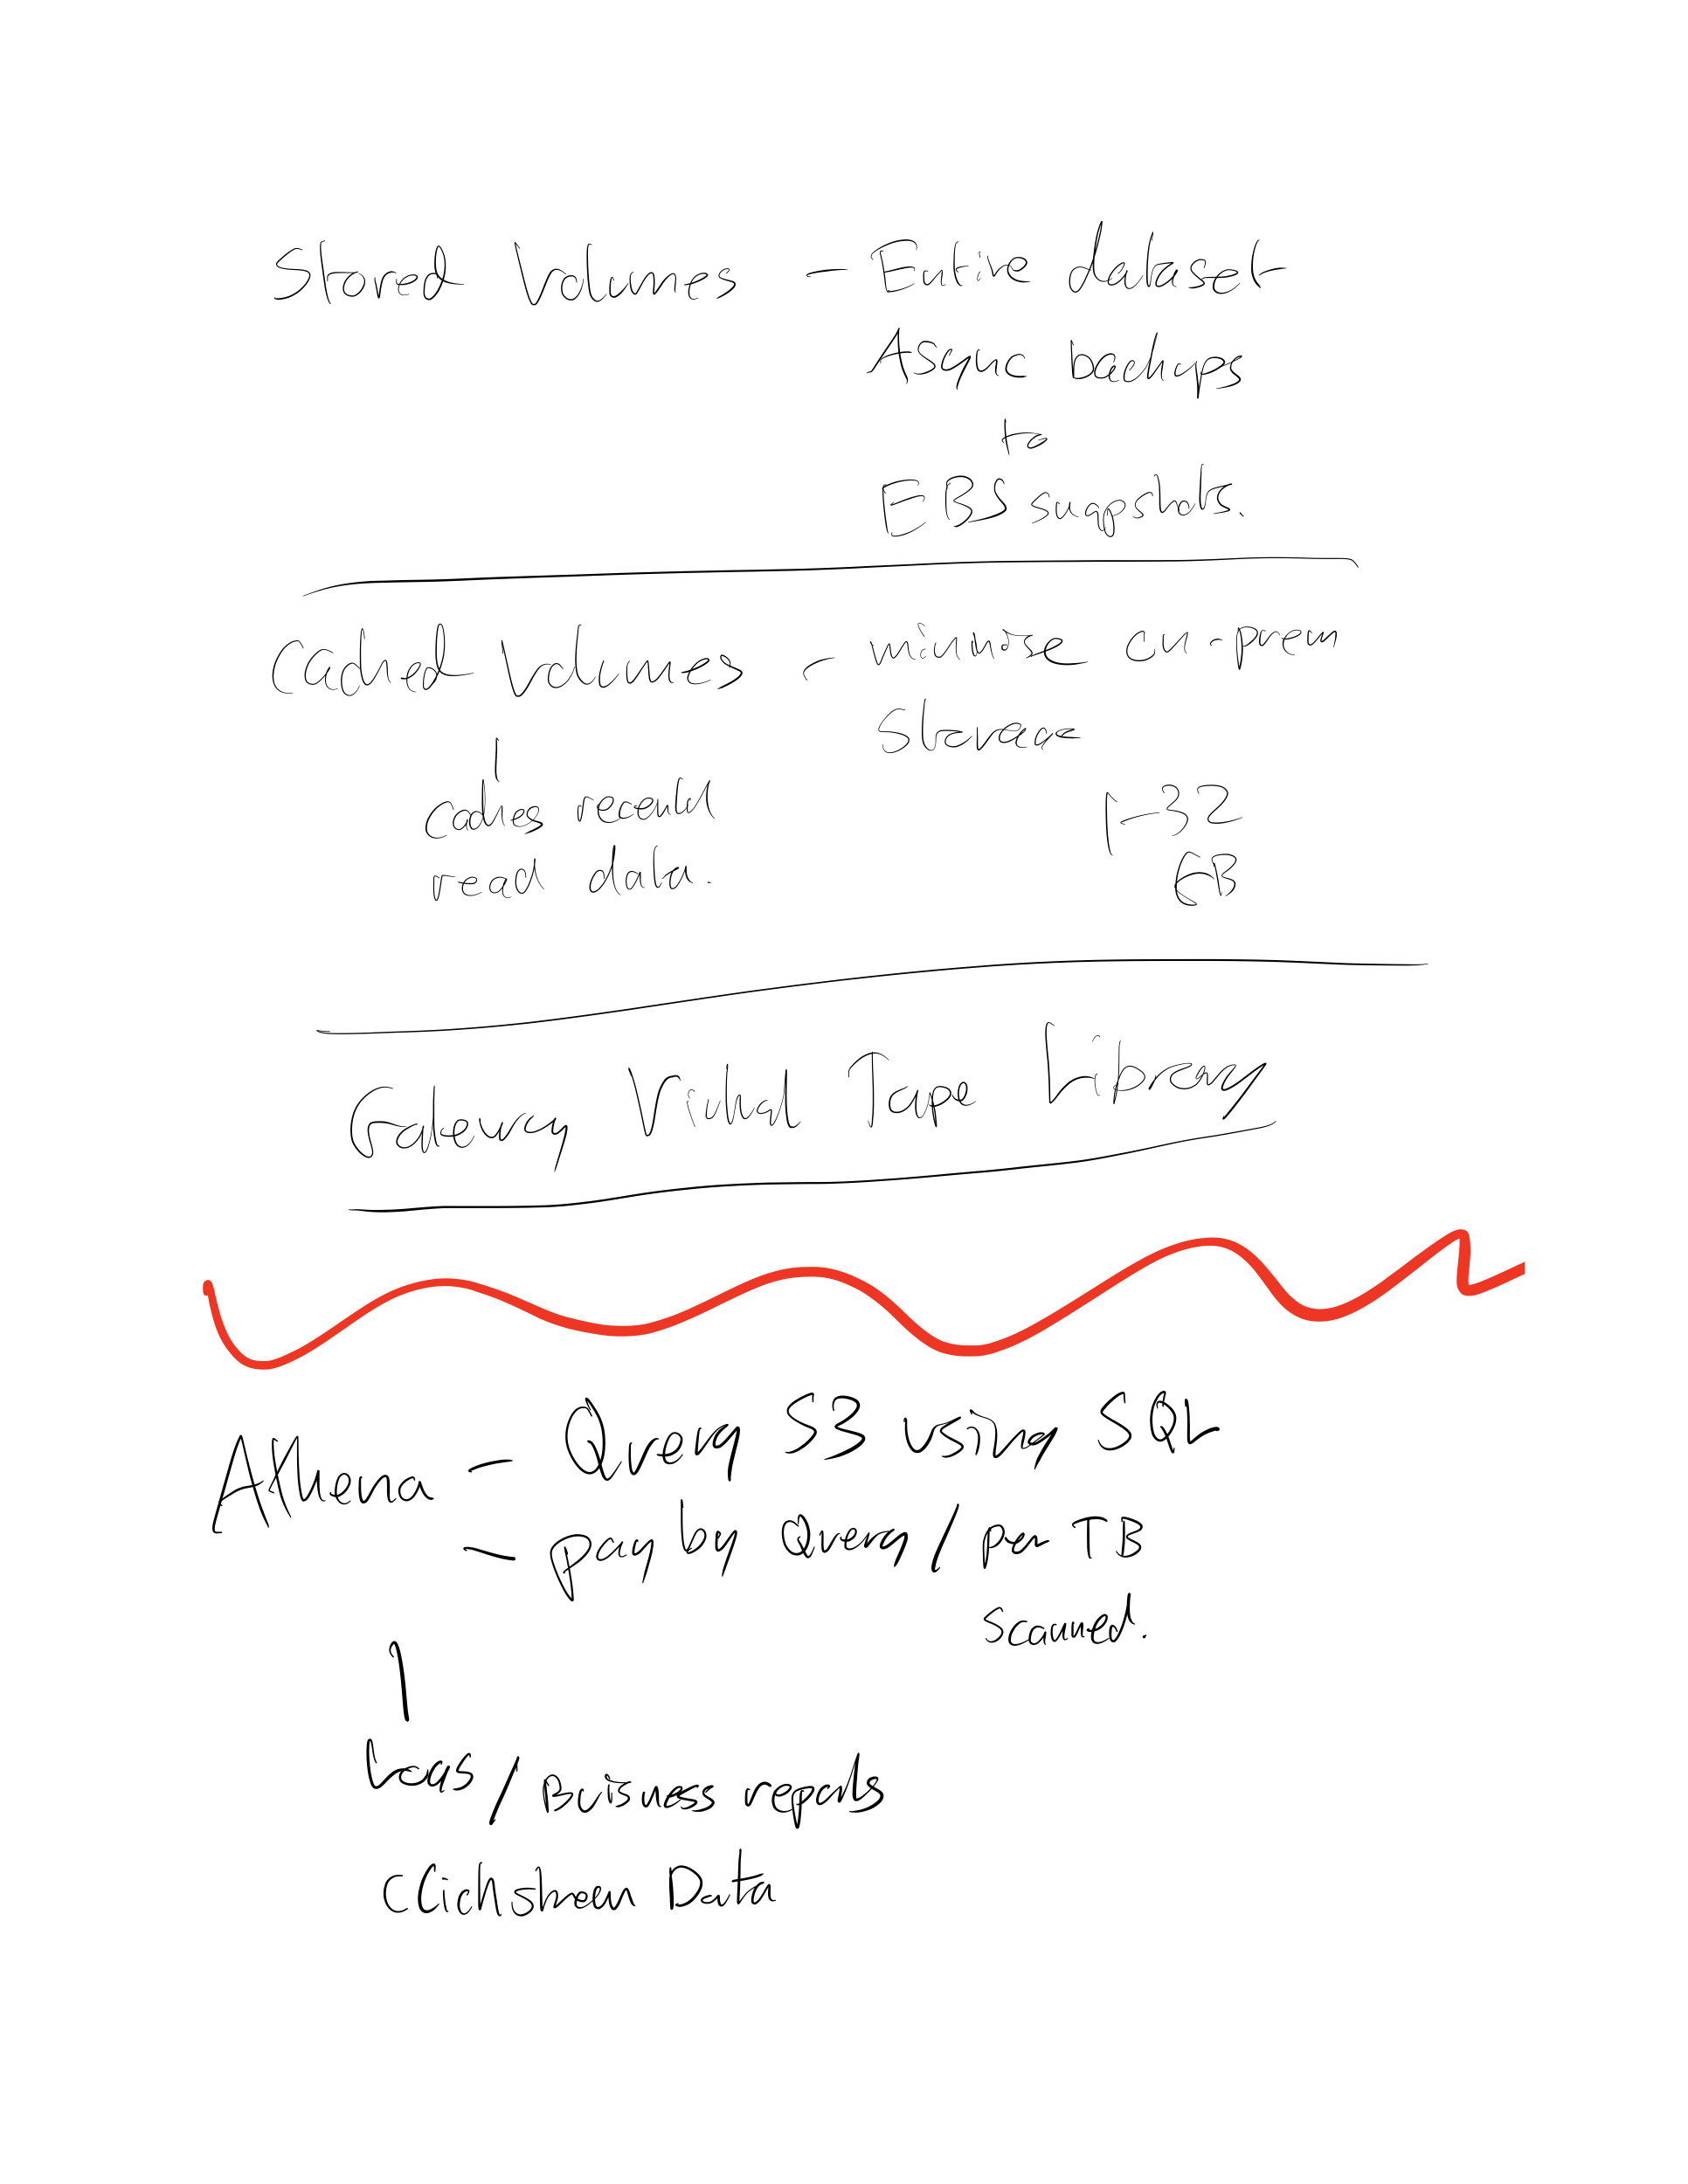 Stored Volumes - Entire dataset
Async backups
to
EBS snapshots.
Cached Volumes - minimise on-prem
Storage
caches recent
read data.
1-32
GB
Gateway Virtual Tape Library
Athena - Query S3 using SQL
- pay by Query / per TB
scanned.
Logs / Buisness reports
Clickstream Data